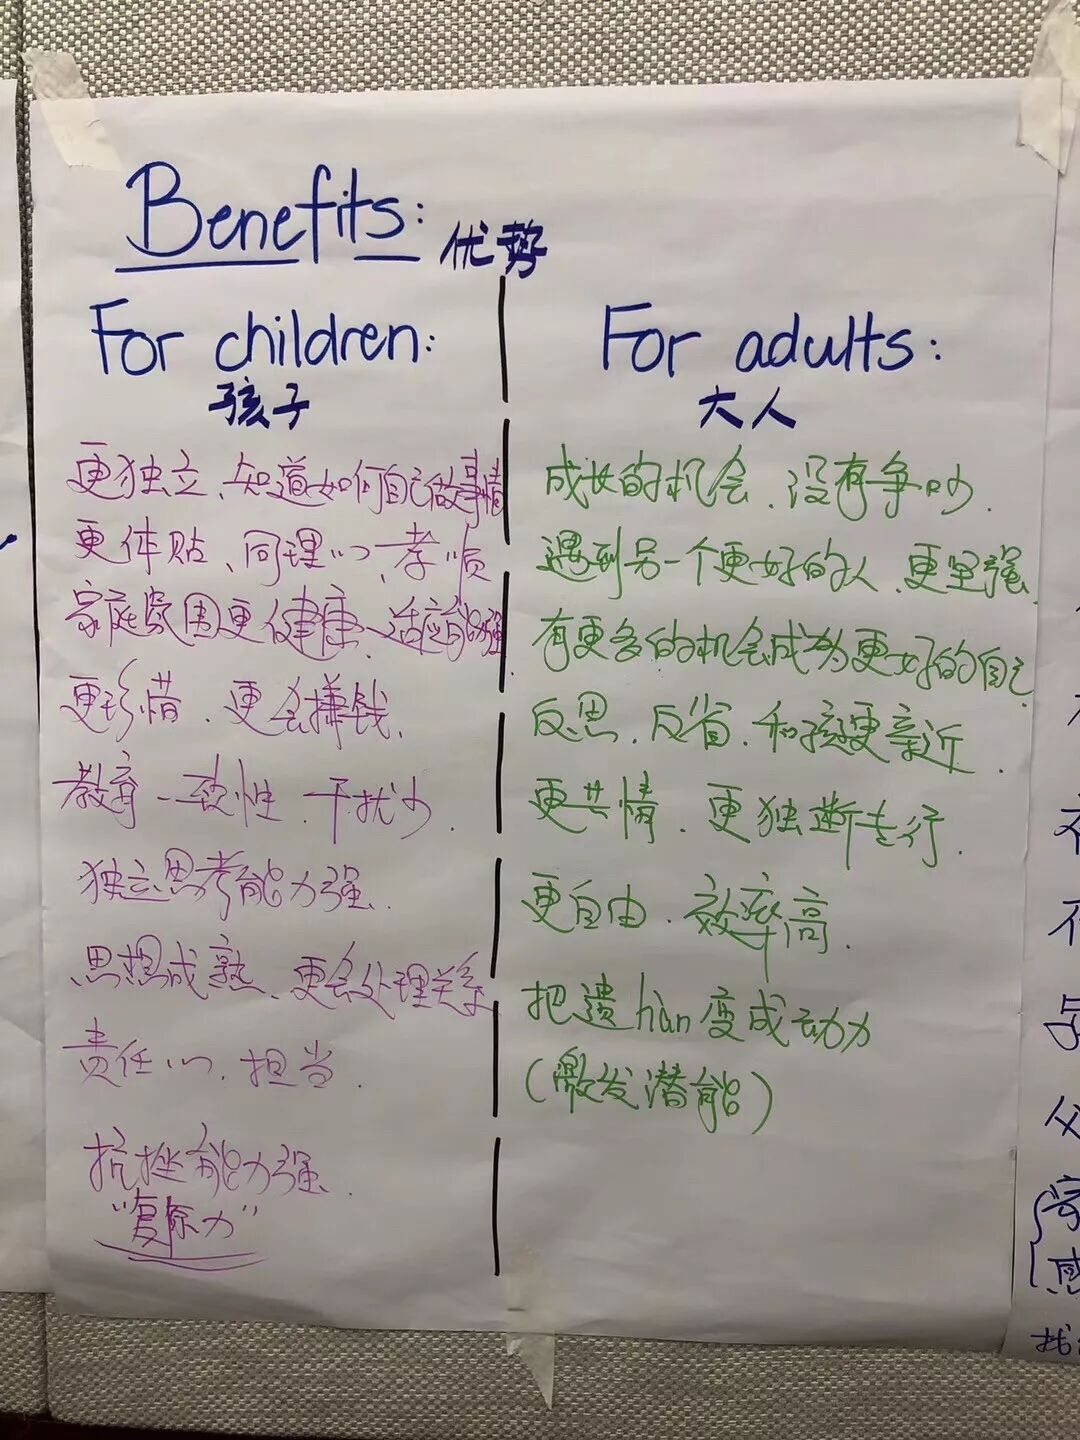 Benefits: 优势
For children:
孩子
更独立、知道如何自己做事情
更体贴、同理心、孝顺
家庭氛围更健康、适应能力强
更珍惜、更会攥钱、
教育一致性、干扰少、
独立思考能力强、
思想成熟、更会处理关系
责任心、担当、
抗挫能力强、
“复原力”
For adults:
大人
成长的机会、没有争吵、
遇到另一个更好的人、更坚强、
有更多的机会成为更好的自己、
反思、反省、和孩更亲近、
更共情、更独断专行、
更自由、效率高、
把遗hàn变成动力
(激发潜能)